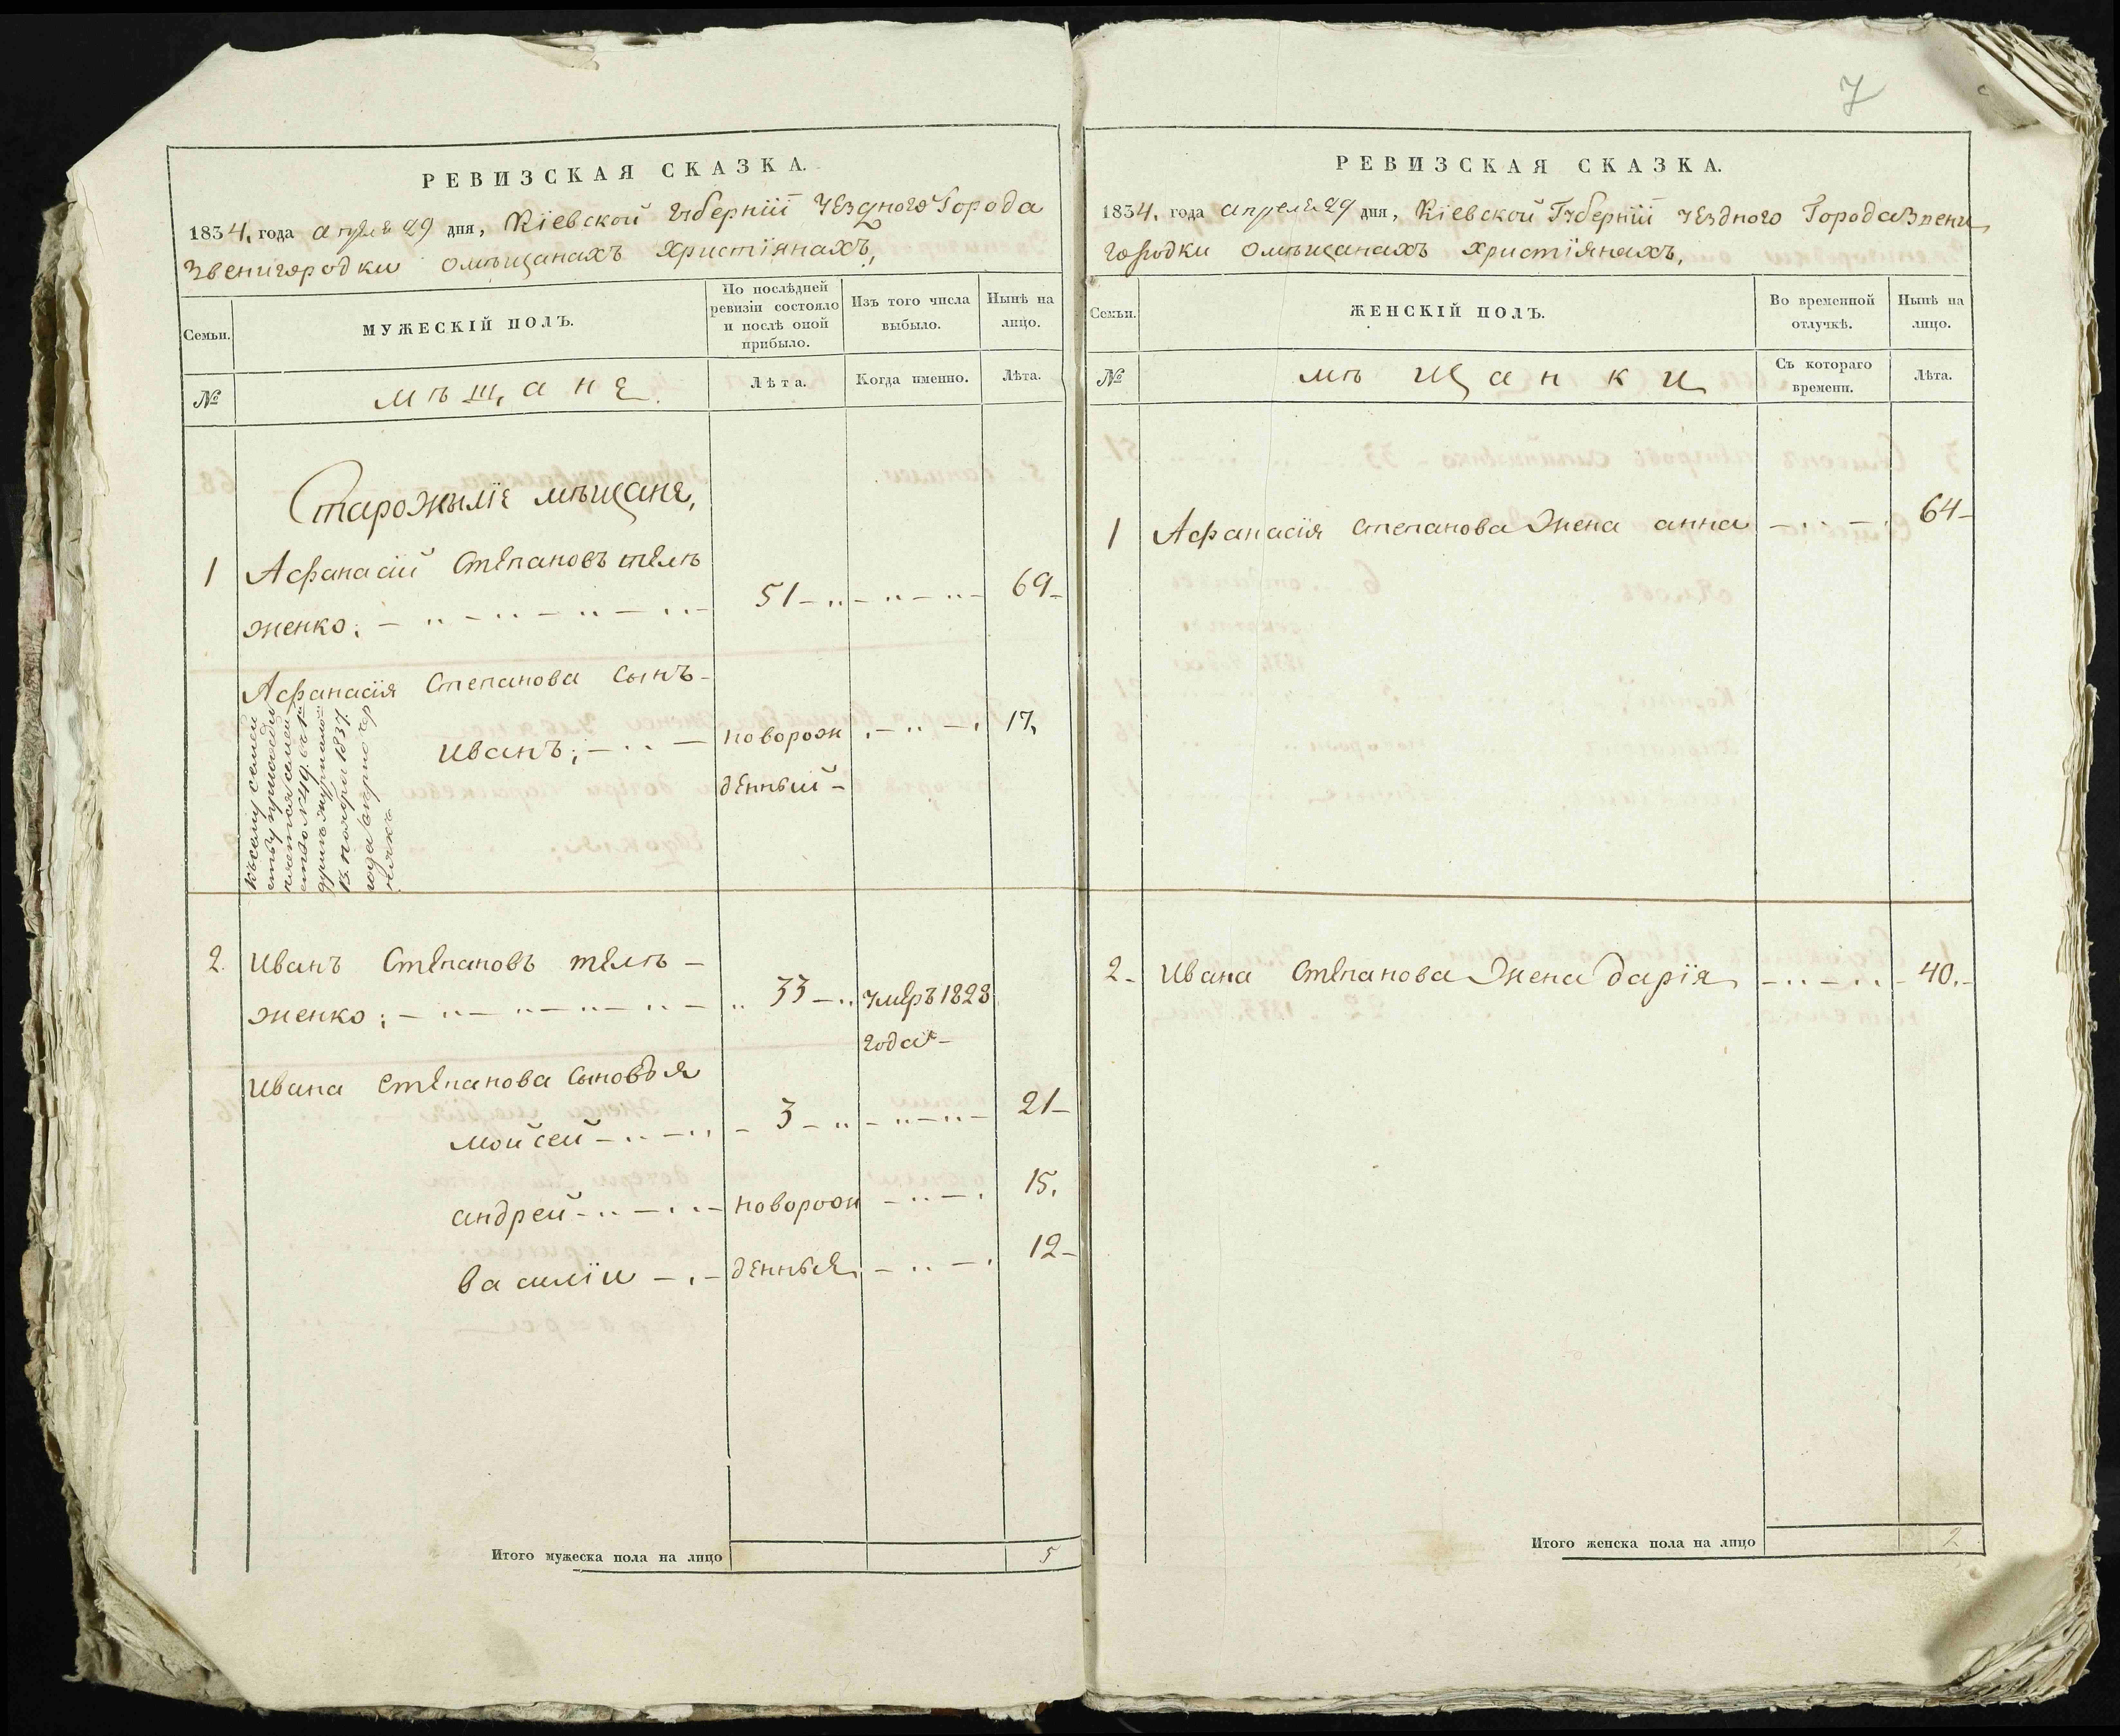 7
РЕВИЗСКАЯ СКАЗКА.
1834, года апреля 29 дня, Кіевской Губерніи уезднаго Города
Звенигородки о мѣщанахъ християнахъ,
Семьи.
МУЖЕСКІЙ ПОЛЪ.
По послѣдней
ревизіи состояло
и послѣ оной
прибыло.
Изъ того числа
выбыло.
Нынѣ на
лицо.
№
мѣщане
Лѣта.
Когда именно.
Лѣта.
Старожилıе мѣщане,
1 Афанасий Степановъ телѣ
женко: 51 69
Афанасія Степанова сынъ
Иванъ; новорож 17,
денный
къ сему семей
ству
13. ноября 1837.
года
2. Иванъ Степановъ телѣ
женко: 33 умеръ 1828
года
Ивана Степанова сыновья
мойсей 3 21
андрей новорож 15.
василіи денные 12
Итого мужеска пола на лицо 5
РЕВИЗСКАЯ СКАЗКА.
1834, года апреля 29 дня, Кіевской Губерніи уездного Города Звени
городки о мѣщанахъ християнахъ,
Семьи.
ЖЕНСКІЙ ПОЛЪ.
Во временной
отлучкѣ.
Нынѣ на
лицо.
№
мѣщанки
Съ котораго
времени.
Лѣта.
1 Афанасія степанова жена анна 64
2 Ивана Степанова жена дарія 40.
Итого женска пола на лицо 2